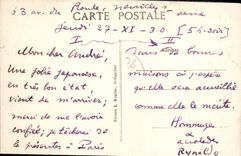 63 av. du Roule, Neuilly s/ Seine
CARTE POSTALE
Jeudi 27-XI-30 [5h. soir]
I
II
Mon cher André,
Une jolie japonaise,
en très bon état,
vient de m'arriver;
merci de me l'avoir
confiée; je tâcherai de
la présenter à Paris
dans bonnes
maisons où j'espère
qu'elle sera accueillie
comme elle le mérite.
Hommages
&
accolades
Reynaldo